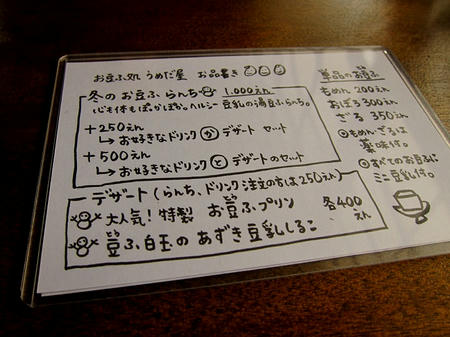 お豆ふ処 うめだ屋 お品書き
冬のお豆ふらんち 1,000えん
心も体もぽかぽか。ヘルシー豆乳の湯豆ふらんち。
+250えん
→お好きなドリンク か デザート セット
+500えん
→お好きなドリンク と デザートのセット
単品のお豆ふ
もめん 200えん
おぼろ 300えん
ざる 350えん
もめん・ざるは
薬味付。
すべてのお豆ふに
ミニ豆乳付。
デザート(らんち、ドリンク注文の方は250えん)
大人気!特製 お豆ふプリン
豆ふ白玉の あずき豆乳しるこ
各400
えん